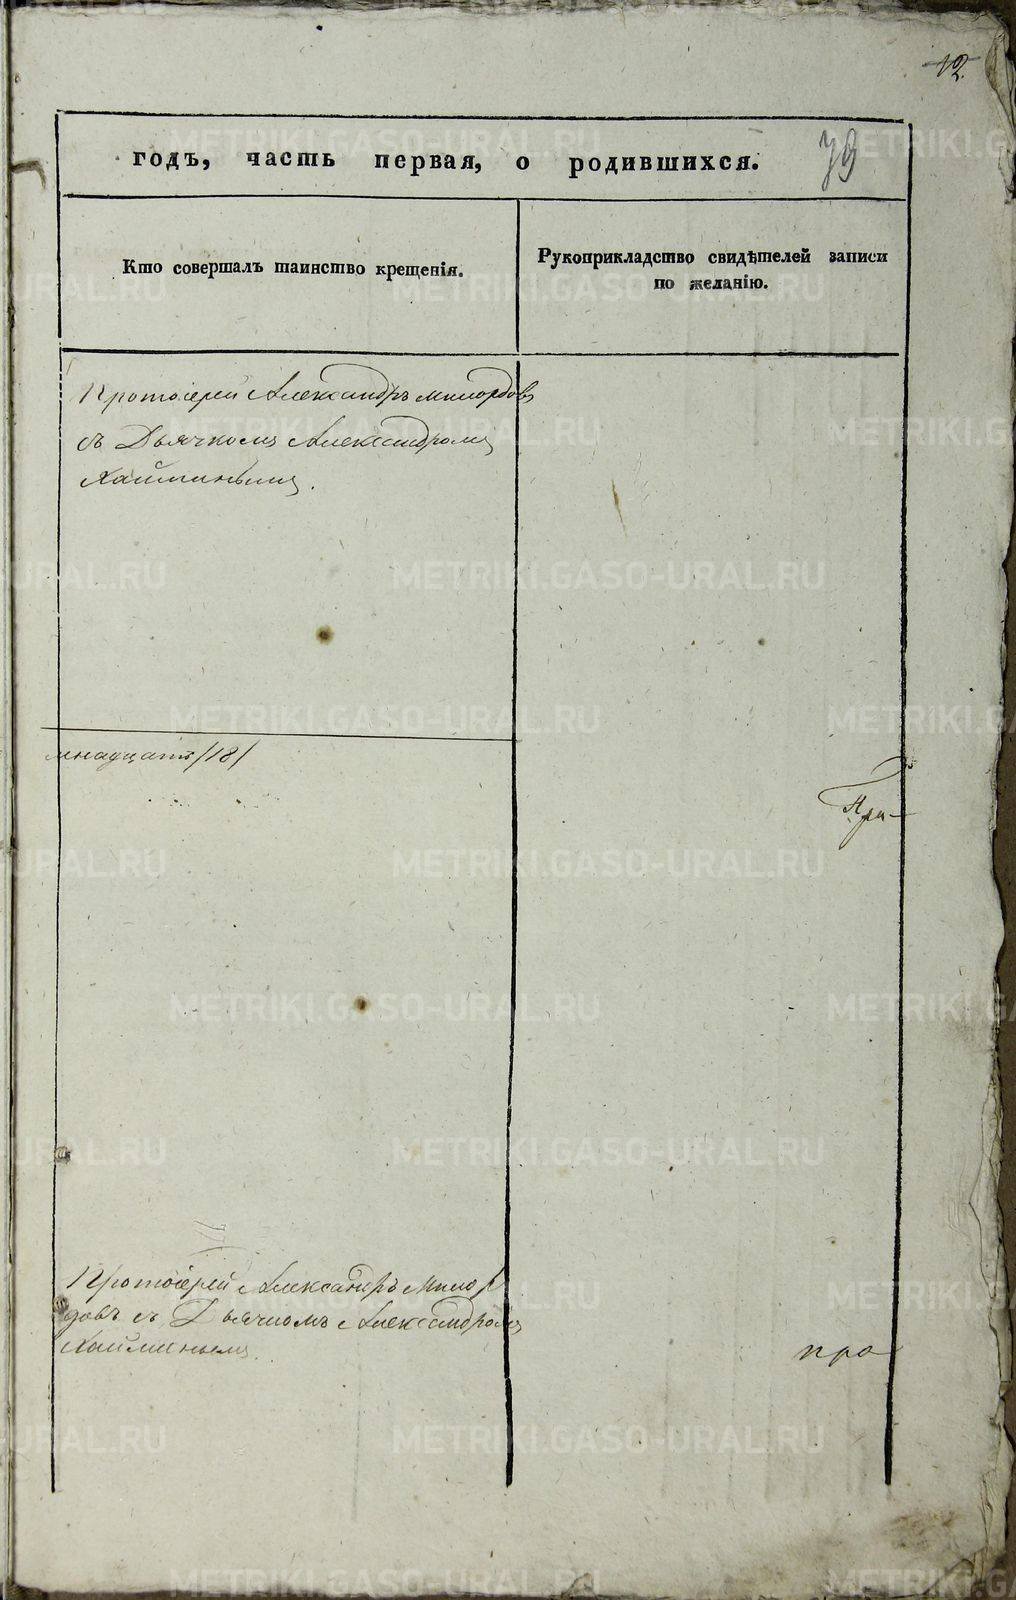 12
годъ, часть первая, о родившихся. 79
Кто совершалъ таинство крещенія.
Рукоприкладство свидѣтелей записи
по желанію.
Протоіерей Александръ Милордовъ
съ Дьячкомъ Александромъ
Хайминымъ.
мнадцать /18/
При-
Протоіерей Александръ Милор
довъ съ Дьячкомъ Александромъ
Хайминымъ.
про
METRIKI.GASO-URAL.RU